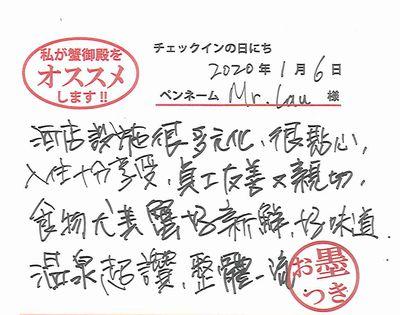 私が蟹御殿を
オススメ
します!!
チェックインの日にち
2020年1月6日
ペンネーム Mr. Lau 様
酒店設施很多元化,很點心,
入住十分享受,員工友善又親切,
食物尤其蟹好新鮮,好味道.
溫泉超讚,整體一流
お墨つき